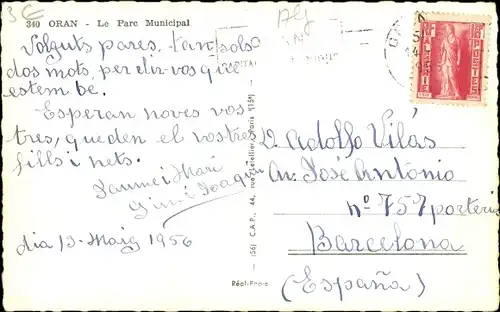 3€
340 ORAN - Le Parc Municipal
Alg
Volguts pares, tan sols
dos mots, per dir-vos que
estem be.
Esperan noves vos
tres, queden el vostres
fills i nets.
Jaume i Mari
i Joaquin
dia 13 Maig 1956
Adolfo Vilás
Av. José António
nº 757 porteria
Barcelona
(España)
(56) C.A.P., 44, rue Letellier, Paris (15e)
Réal-Photo
ALGERIE
POSTES